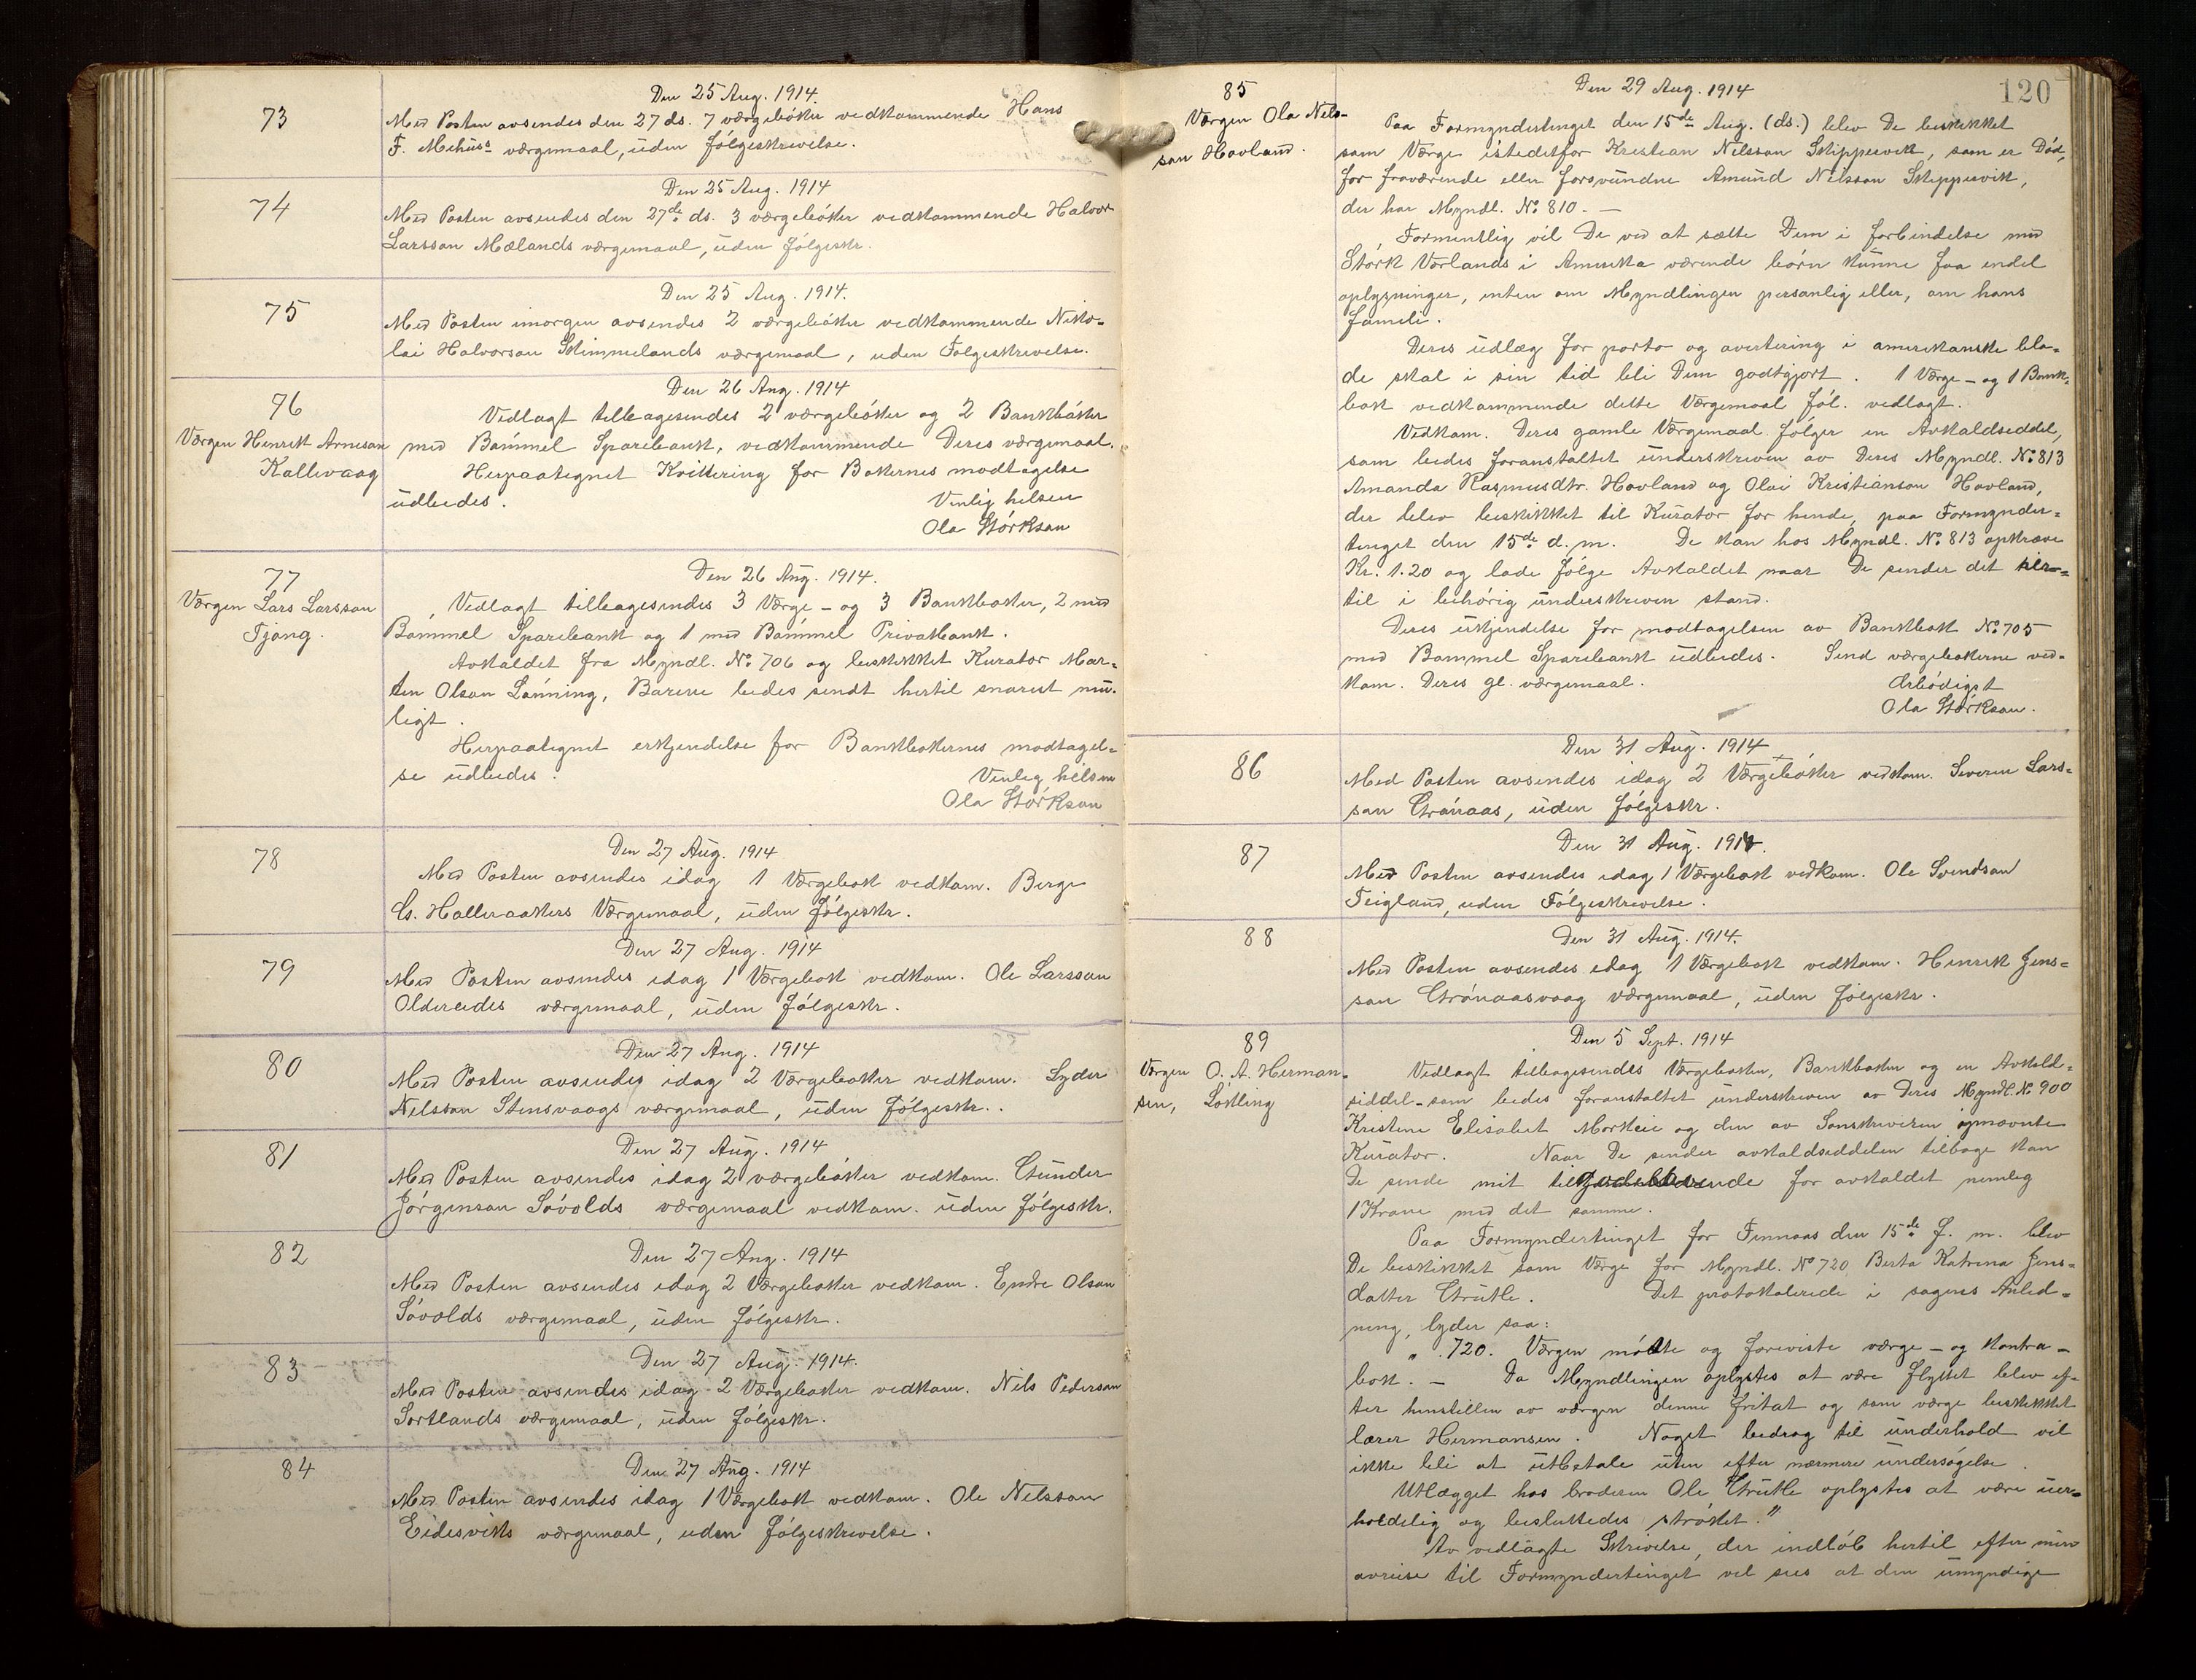 73
Den 25 Aug. 1914.
Med Posten avsendes den 27 ds. 7 værgebøker vedkommende Hans
F. Mehus's værgemaal, uden følgeskrivelse.
74
Den 25 Aug. 1914
Med Posten avsendes den 27de ds. 3 værgebøker vedkommende Halvor
Larsson Mælands værgemaal, uden følgeskr.
75
Den 25 Aug. 1914.
Med Posten imorgen avsendes 2 værgebøker vedkommende Niko-
lai Halvorson Skimmelands værgemaal, uden Følgeskrivelse.
76
Værgen Henrik Arneson
Kallevaag
Den 26 Aug. 1914
Vedlagt tilbagesendes 2 værgebøker og 2 Bankbøker
med Bømmel Sparebank, vedkommende Deres værgemaal.
Herpaategnet Kvittering for Bøkernes modtagelse
udbedes.
Venlig hilsen
Ola Størkson
77
Værgen Lars Larsson
Tjong.
Den 26 Aug. 1914.
Vedlagt tilbagesendes 3 Værge- og 3 Bankbøker, 2 med
Bømmel Sparebank og 1 med Bømmel Privatbank.
Avkaldet fra Myndl. No 706 og beskikket Kurator Mar-
tin Olson Lønning, Barene bedes sendt hertil snarest mu-
ligt.
Herpaategnet erkjendelse for Bankbøkernes modtagel-
se udbedes.
Venlig hilsen
Ola Størkson
78
Den 27 Aug. 1914
Med Posten avsendes idag 1 Værgebok vedkom. Berge
G. Halleraakers Værgemaal, uden følgeskr.
79
Den 27 Aug. 1914
Med Posten avsendes idag 1 Værgebok vedkom. Ole Larsson
Oldereides værgemaal, uden følgeskr.
80
Den 27 Aug. 1914
Med Posten avsendes idag 2 Værgebøker vedkom. Lyder
Nelsson Stensvaags værgemaal, uden følgeskr..
81
Den 27 Aug. 1914
Med Posten avsendes idag 2 værgebøker vedkom. Gunder
Jørgenson Søvolds værgemaal vedkom. uden følgeskr.
82
Den 27 Aug. 1914
Med Posten avsendes idag 2 Værgebøker vedkom. Endre Olson
Søvolds værgemaal, uden følgeskr.
83
Den 27 Aug. 1914.
Med Posten avsendes idag 2 Værgebøker vedkom. Nils Pederson
Sortlands værgemaal, uden følgeskr.
84
Den 27 Aug. 1914
Med Posten avsendes idag 1 Værgebok vedkom. Ole Nelsson
Eidesviks værgemaal, uden følgeskrivelse.
120
85
Værgen Ola Nels-
son Hovland.
Den 29 Aug. 1914
Paa Formyndertinget den 15de Aug. (ds.) blev De beskikket
som Værge istedetfor Kristian Nelsson Skippervik, som er Død,
for fraværende eller forsvundne Amund Nelsson Skippervik,
der har Myndl. No 810. —
Formentlig vil De ved at sætte Dem i forbindelse med
Størk Vorlands i Amerika værende børn kunne faa endel
oplysninger, enten om Myndlingen personlig eller, om hans
famili.
Deres udlæg for porto og avertering i amerikanske bla-
de skal i sin tid bli Dem godtgjort. 1 Værge- og 1 Bank-
bok vedkommende dette Værgemaal føl. vedlagt.
Vedkom. Deres gamle Værgemaal følger en Avkaldseddel,
som bedes foranstaltet underskreven av Deres Myndl. No 813
Amanda Rasmusdtr. Hovland og Olai Kristianson Hovland,
der blev beskikket til Kurator for hende, paa Formynder-
tinget den 15de d. m. De kan hos Myndl. No 813 opkræve
Kr. 1.20 og lade følge Avkaldet naar De sender det her-
til i behørig underskreven stand.
Deres erkjendelse for modtagelsen av Bankbok No 705
med Bømmel Sparebank udbedes. Send værgebøkerne ved-
kom. Deres gl. værgemaal.
Ærbødigst
Ola Størkson.
86
Den 31 Aug. 1914
Med Posten avsendes idag 2 Værgebøker vedkom. Severin Lars-
son Grønaas, uden følgeskr.
87
Den 31 Aug. 1914.
Med Posten avsendes idag 1 Værgebok vedkom. Ole Svendson
Feigland, uden Følgeskrivelse.
88
Den 31 Aug. 1914.
Med Posten avsendes idag 1 Værgebok vedkom. Henrik Jens-
son Grønaasvaag værgemaal, uden følgeskr.
89
Værgen O. A. Herman-
sen, Løkling
Den 5 Sept. 1914
Vedlagt tilbagesendes Værgeboken, Bankboken og en Avkald-
seddel - som bedes foranstaltet underskreven av Deres Myndl. No 900
Kristine Elisabet Morkeie og den av Sorenskriveren opnævnte
Kurator. Naar De sender avkaldseddelen tilbage kan
De sende mit tilgodehavende for avkaldet nemleg
1 Krone med det samme.
Paa Formyndertinget for Finnaas den 15de f. m. blev
De beskikket som Værge for Myndl. No 720 Berta Katrina Jens-
datter Grutle. Det protokolerede i sagens Anled-
ning, lyder saa:
„ 720. Værgen mødte og foreviste værge- og kontra-
bok. — Da Myndlingen oplystes at være flyttet blev ef-
ter henstillen av værgen denne fritat og som værge beskikket
lærer Hermansen. Noget bedrag til underhold vil
ikke bli at utbetale uten efter nærmere undersøgelse.
Utlægget hos broderen Ole Grutle oplystes at være uer-
holdelig og besluttedes strøket."
Av vedlagte Skrivelse, der indløb hertil efter min
avreise til Formyndertinget vil sees at den umyndige